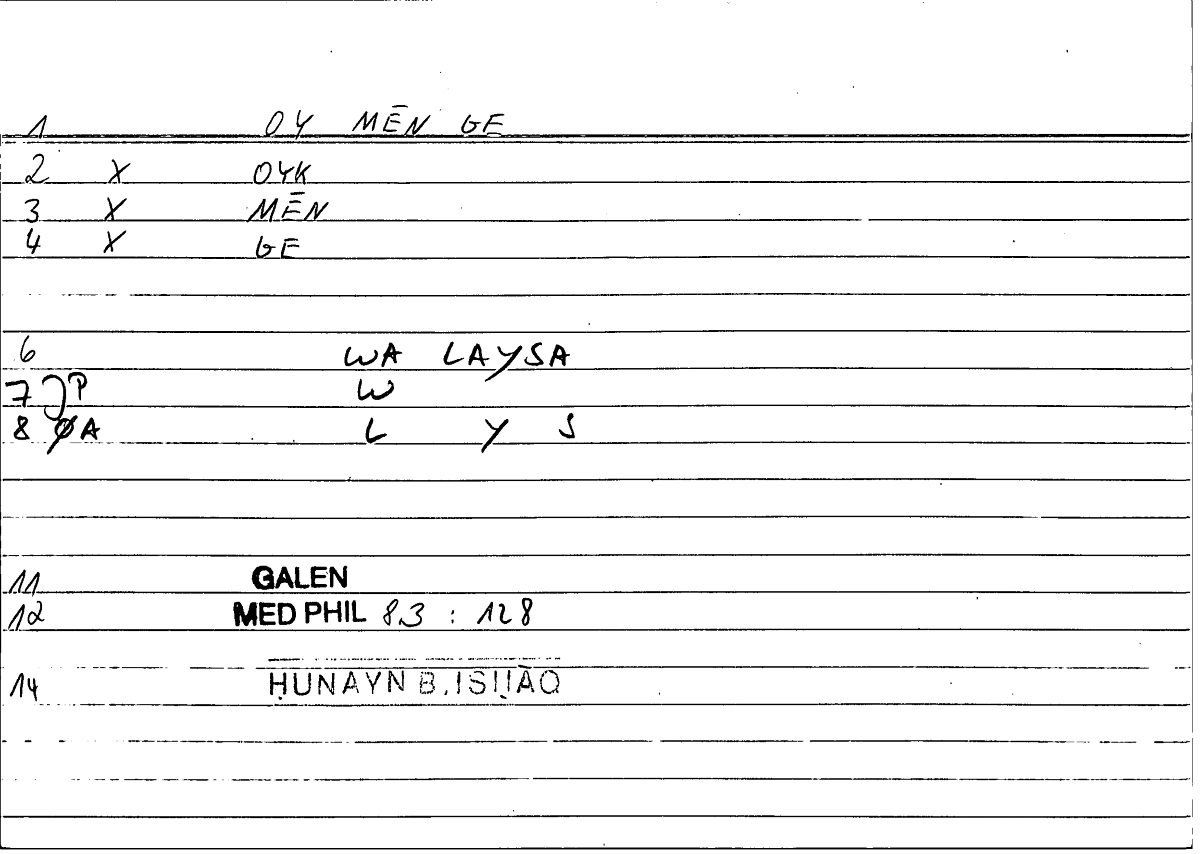 1 OY MĒN GE
2 X OYK
3 X MĒN
4 X GE
6 WA LAYSA
7 P W
8 A L Y S
11 GALEN
12 MED PHIL 8,3 : 128
14 ḤUNAYN B. ISḤĀQ